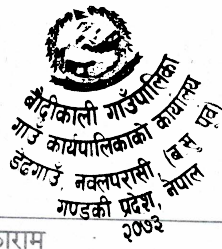 बौदीकाली गाउँपालिका
गाउँ कार्यपालिकाको कार्यालय
डेढगाउँ, नवलपरासी (ब सु पूर्व)
गण्डकी प्रदेश, नेपाल
२०७३